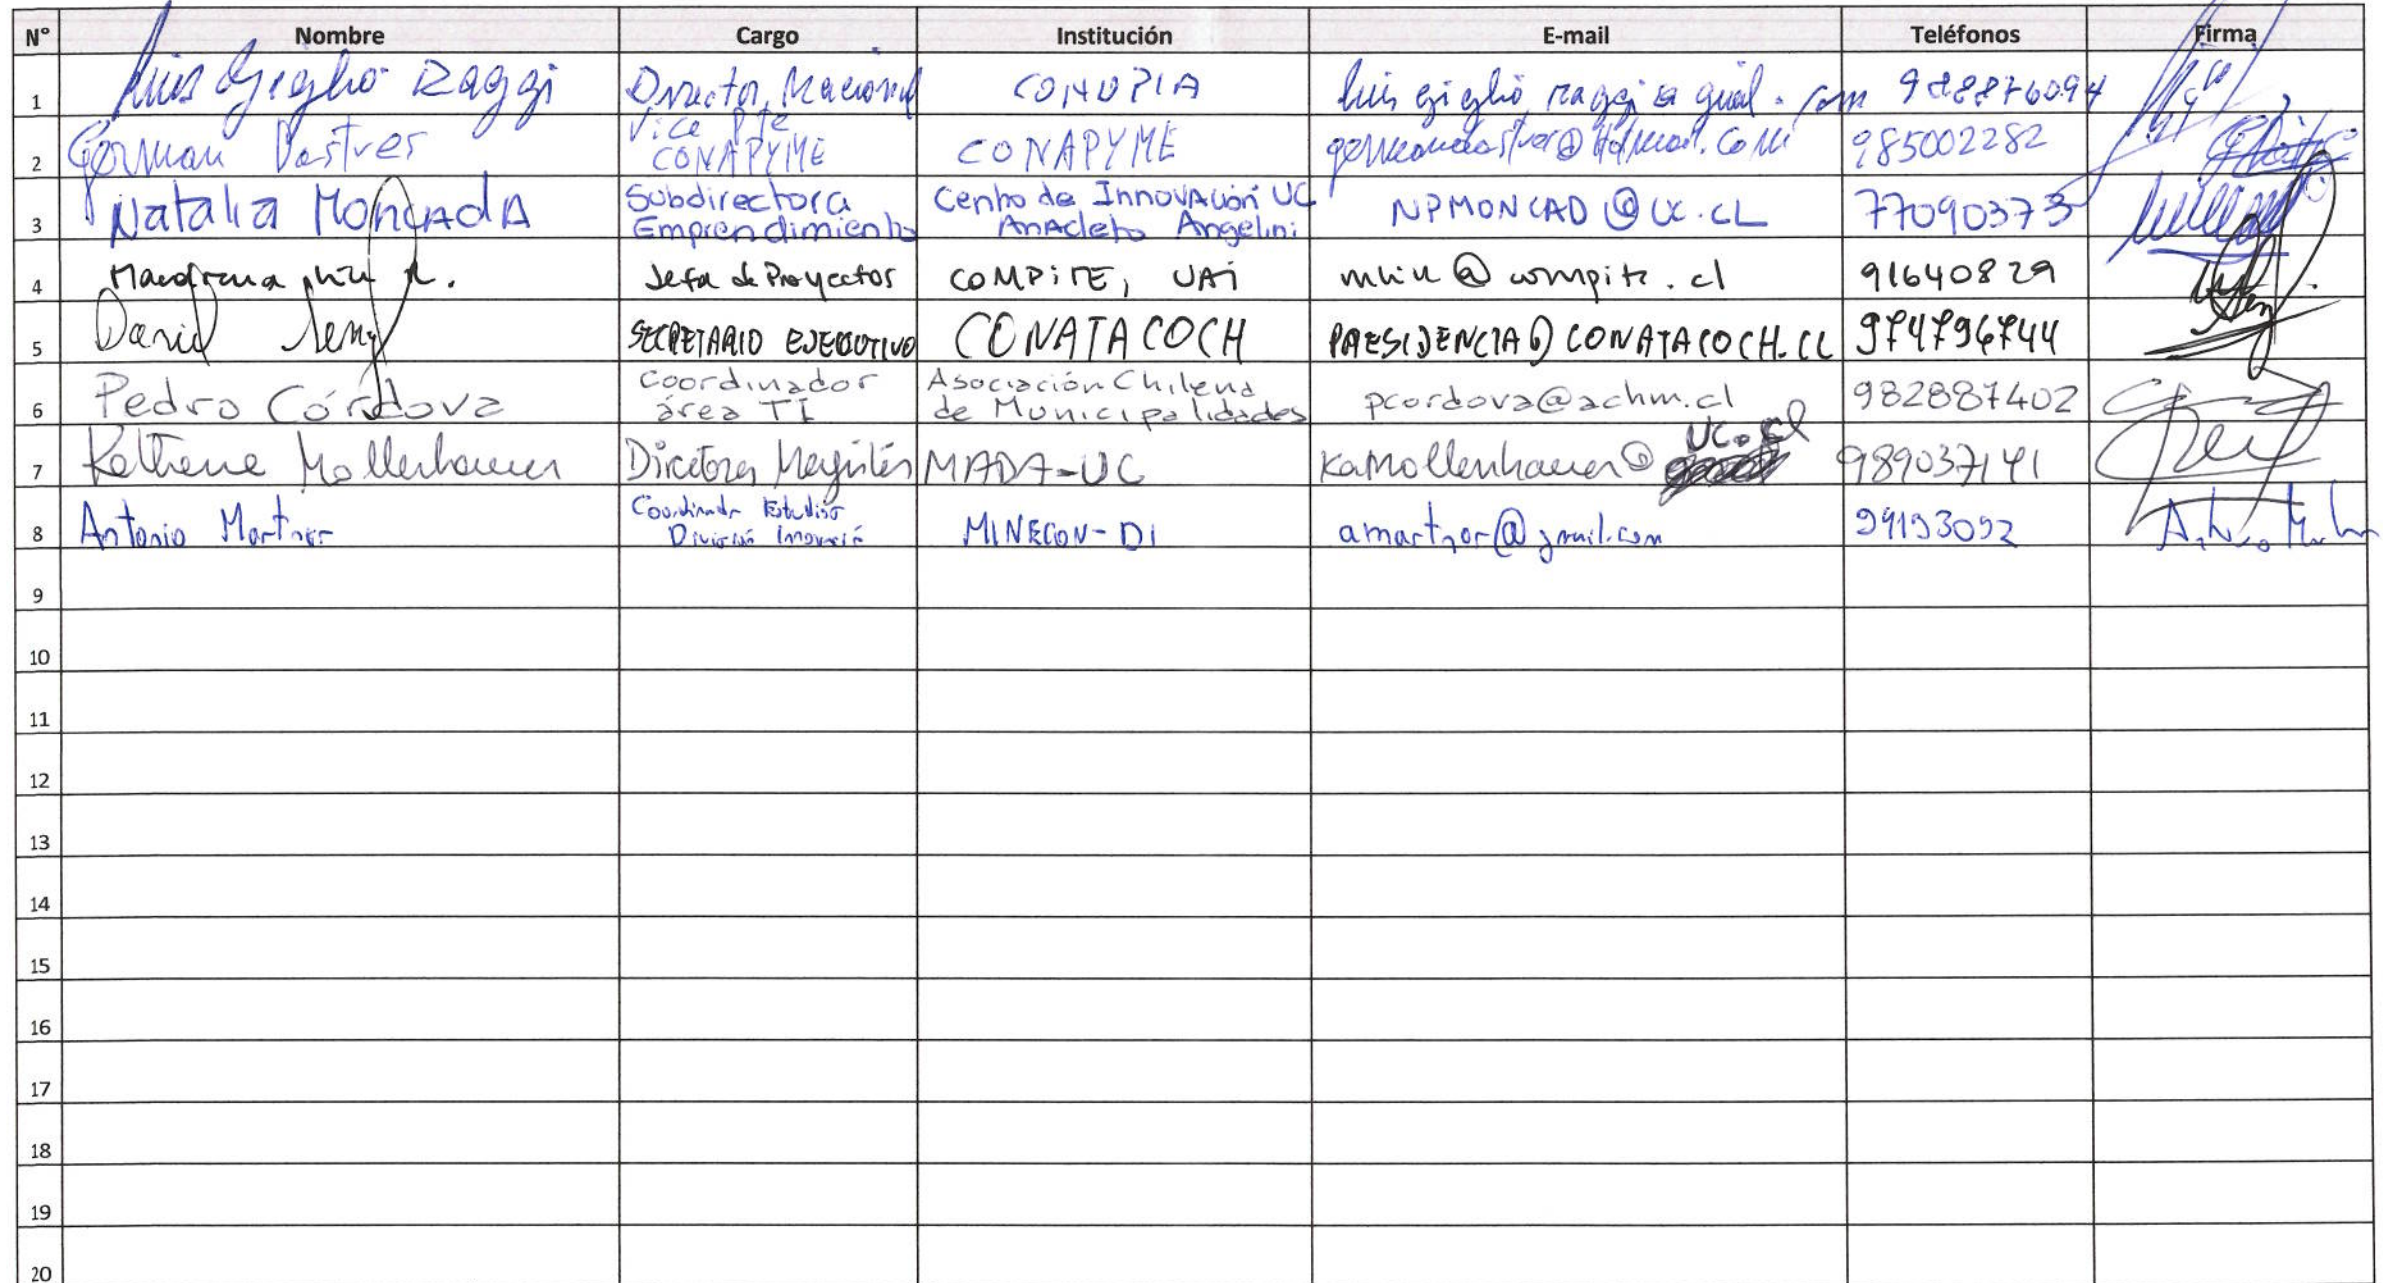 N° Nombre Cargo Institución E-mail Teléfonos Firma
1 Luis Giglio Raggi Director Nacional CONUPIA 988876094
2 German Dastres Vice Pte CONAPYME CONAPYME germandastres@Hotmail.com 985002282
3 Natalia MoncadA Subdirectora Emprendimiento Centro de InnovAción UC AnAcleto Angelini NPMONCAD@UC.CL 77090373
4 R. Jefa de Proyectos COMPiTE, UAi @compite.cl 91640829
5 David SECRETARIO EJECUTIVO CONATACOCH PRESIDENCIA@CONATACOCH.CL 974796744
6 Pedro Córdova Coordinador área TI Asociación Chilena de Municipalidades pcordova@achm.cl 982887402
7 Katherine Mollenhauer Directora Magíster MADA-UC kamollenhauer@uc.cl 989037141
8 Antonio Martner Coordinador Estudios División Innovación MINECON-DI amartner@gmail.com 99193092
9
10
11
12
13
14
15
16
17
18
19
20